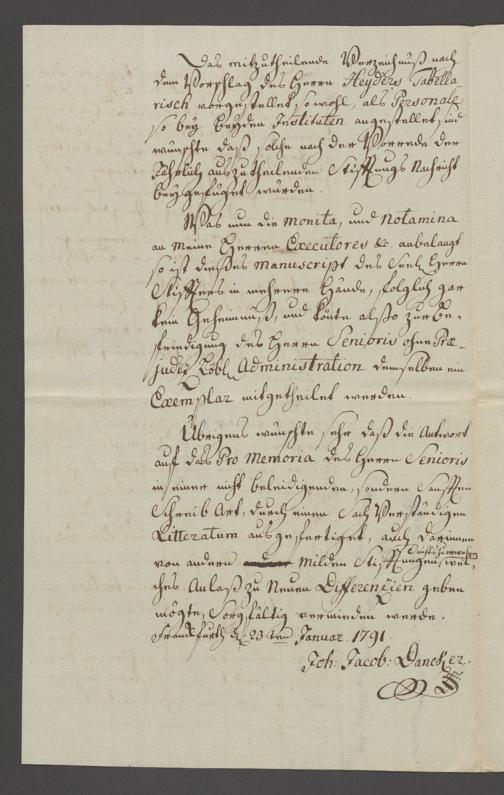 Das mitzutheilende Verzeichnuß nach
dem Vorschlag des Herrn Heyders Tabella
risch vorgestellet so wohl, als Personale,
so bey beyden Instituten angestellet, und
wünschte daß solche nach der Vorrede der
Jährlich auszutheilenden Stifftungs Nachricht
beygefüget würden.
Was nun die monita, und Notamina
an meine Herren Executores &c. anbelangt
so ist dießes manuscript des Seel. Herrn
Stiffters in mehrere Hände, folglich gar
kein Geheimnuß, und könte also zur Be-
friedigung des Herrn Senioris ohne Præ-
judiz Löbl. Administration demselben ein
Exemplar mitgetheilet werden.
Übrigens wünschte sehr daß die Antwort
auf das Pro Memoria des Herrn Senioris
in einer nicht beleidigenden, sondern Sanfften
Schreib Art, durch einen Sach Verständigen
Litteratum ausgefertiget, auch darinnen
von andern milden Stifftungen, wel
ches Anlaß zu Neuen Differenzien geben
mögte, Sorgfältig vermieden werde.
Franckfurth d. 23ten Januar. 1791.
Joh: Jacob: Dancker.